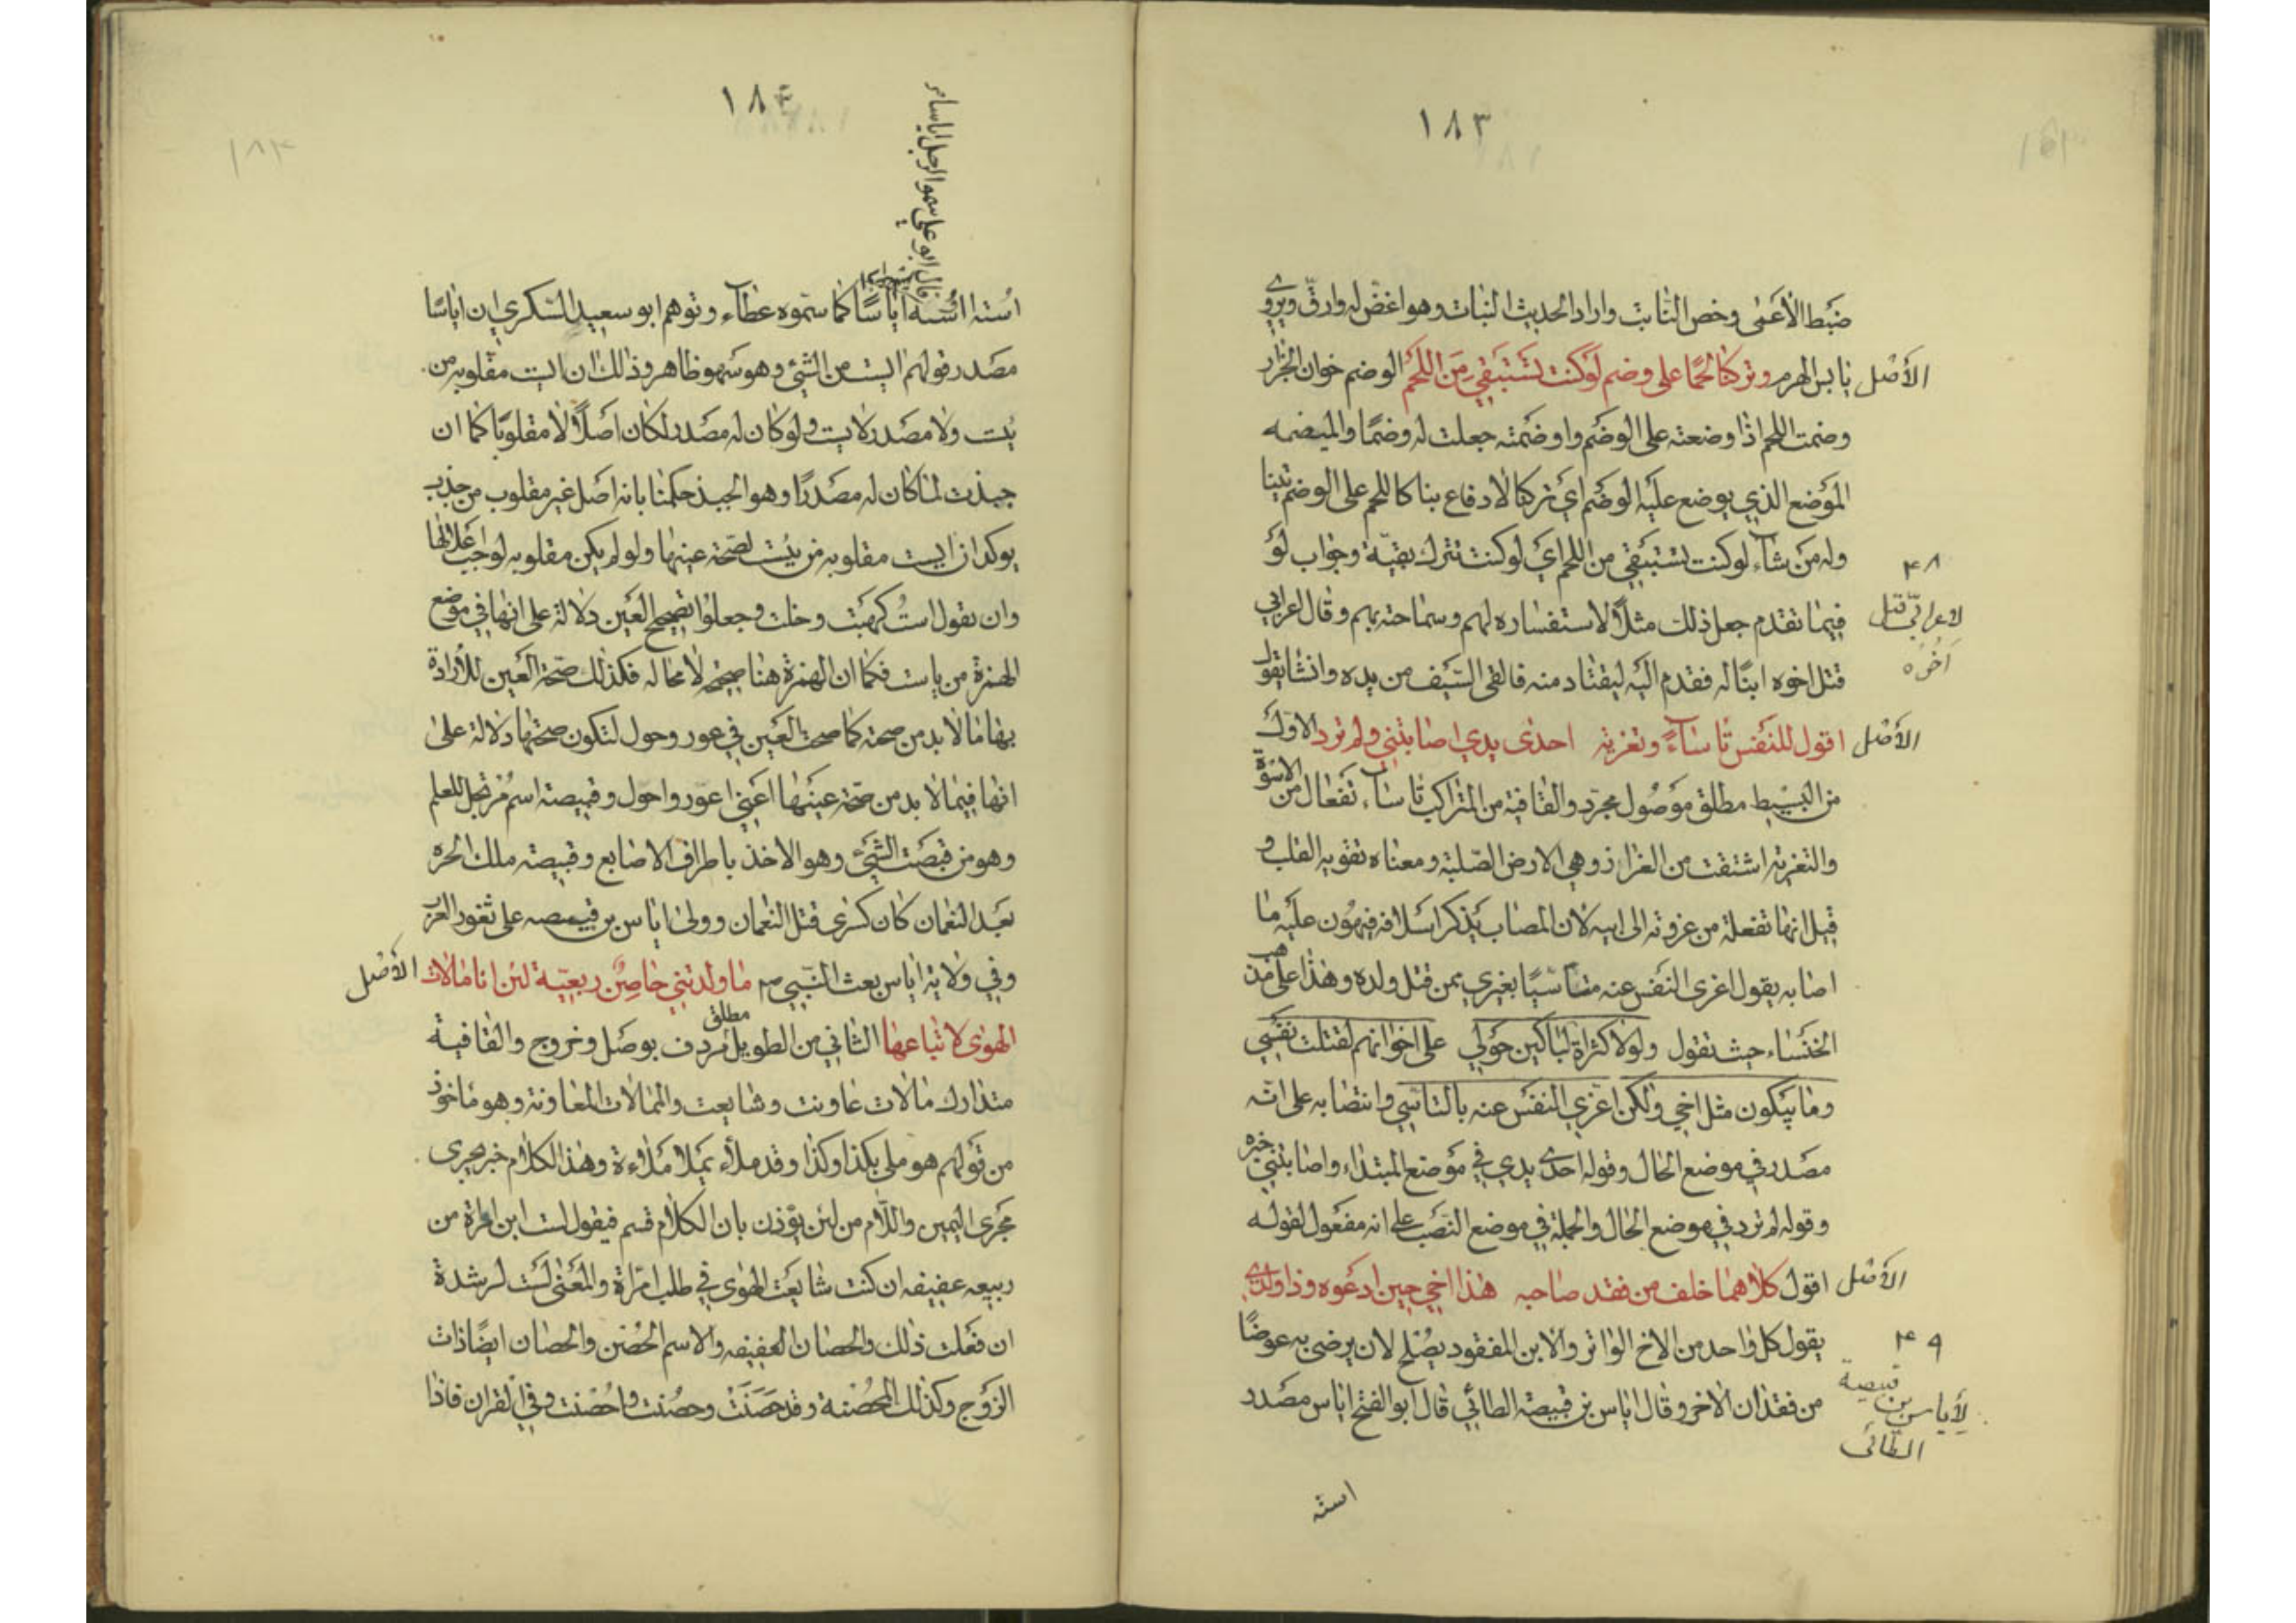 ١٨٣
ضبط الأعمى وخص الثابت واراد الحديث النبات وهو اغض له وارق ويروى
الأصل
يا بس الهرم وتركنا لحما على وضم لو كنت تستبقي من اللحم الوضم خوان الجزار
وضمت اللحم اذا وضعته على الوضم واوضمته جعلت له وضما والميضمه
الموضع الذي يوضع عليه الوضم اي تركنا لا دفاع بنا كاللحم على الوضم
وله من شاء لو كنت تستبقي من اللحم اي لو كنت تترك بقية وجواب لو
٤٨
لاعرابي قتل اخوه
فيما تقدم جعل ذلك مثلا لاستفساره لهم وسماحته بهم وقال اعرابي
قتل اخوه ابنا له فقدم اليه ليقتاد منه فالقى السيف من يده وانشا يقول
الأصل
اقول للنفس تاساء وتعزية احدى يدي اصابتني ولم ترد الاول
من البسيط مطلق موصول مجرد والقافية من المتراكب تاساء تفعال من الاسوة
والتعزية اشتقت من العزاز وهي الارض الصلبة ومعناه تقوية القلب و
قيل انها تفعلة من عزوته الى ابيه لان المصاب يذكر اسلافه فيهون عليه ما
اصابه يقول اعزى النفس عنه متاسيا بغيري بمن قتل ولده وهذا على مذهب
الخنساء حيث تقول ولولا كثرة الباكين حولي على اخوانهم لقتلت نفسي
وما يبكون مثل اخي ولكن اعزي النفس عنه بالتاسي وانتصابه على انه
مصدر في موضع الحال وقوله احدى يدي في موضع المبتداء واصابتني خبره
وقوله لم ترد في موضع الحال والجملة في موضع النصب على انه مفعول لقوله
الأصل
اقول كلاهما خلف من فقد صاحبه هذا اخي حين ادعوه وذا ولدي
٤٩
لأياس بن قبيصة الطائى
يقول كل واحد من الاخ الواتر والابن المفقود يصلح لان يرضى به عوضا
من فقدان الاخر وقال اياس بن قبيصة الطائي قال ابو الفتح اياس مصدر
استه
١٨٤
قال ابو علي سموا الرجل اياسا
استه اؤسه اياسا كما سموه عطاء وتوهم ابو سعيد السكري ان اياسا
مصدر قولهم ايست من الشئ وهو سهو ظاهر وذلك ان ايست مقلوبه من
يئست ولا مصدر لايست ولو كان له مصدر لكان اصلا لا مقلوبا كما ان
جبذت لما كان له مصدرا وهو الجبذ حكمنا بانه اصل غير مقلوب من جذب
يوكد ان ايست مقلوبه من يئست لصحة عينها ولو لم يكن مقلوبه لوجب اعلالها
وان يقول است كهبت وخلت وجعلوا تصحيح العين دلالة على انها في موضع
الهمزة من ياست فكما ان الهمزة هنا صحيحه لا محاله فكذلك صحة العين للأرادة
بها ما لا بد من صحته كما صحت العين في عور وحول لتكون صحتها دلالة على
انها فيما لا بد من صحة عينها اعني اعور واحول وقبيصة اسم مرتجل للعلم
وهو من قبصت الشئ وهو الاخذ باطراف الاصابع وقبيصة ملك الحره
بعد النعمان كان كسرى قتل النعمان وولى اياس بن قبيصه على ثغور العرب
الأصل
وفي ولاية اياس بعث النبي صم ما ولدتني حاصن ربعية لئن انا مالات
الهوى لاتباعها الثاني من الطويل مطلق مردف بوصل وخروج والقافية
متدارك مالات عاونت وشايعت والممالات المعاونة وهو ماخوذ
من قولهم هو ملي بكذا وكذا وقد ملأ يملا ملاءة وهذا الكلام خبر يجرى
مجرى اليمين واللام من لئن يؤذن بان الكلام قسم فيقول لست ابن امراة من
ربيعه عفيفه ان كنت شايعت الهوى في طلب امراة والمعنى لست لرشدة
ان فعلت ذلك والحصان العفيفه والاسم الحصن والحصان ايضا ذات
الزوج وكذلك المحصنة وقد حصنت وحصنت واحصنت وفي القران فاذا